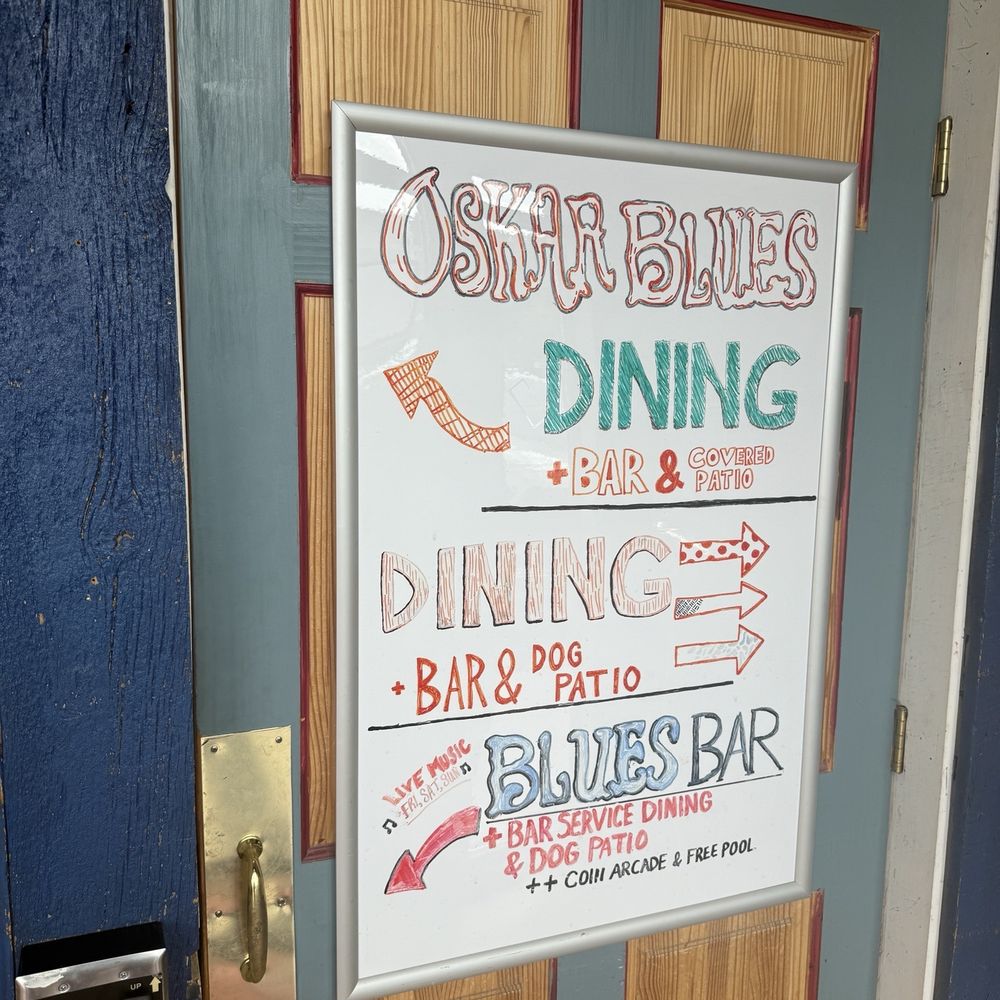 OSKAR BLUES
DINING
+ BAR & COVERED PATIO
DINING
+ BAR & DOG PATIO
LIVE MUSIC
FRI, SAT, SUN
BLUES BAR
+ BAR SERVICE DINING
& DOG PATIO
++ COIN ARCADE & FREE POOL
UP